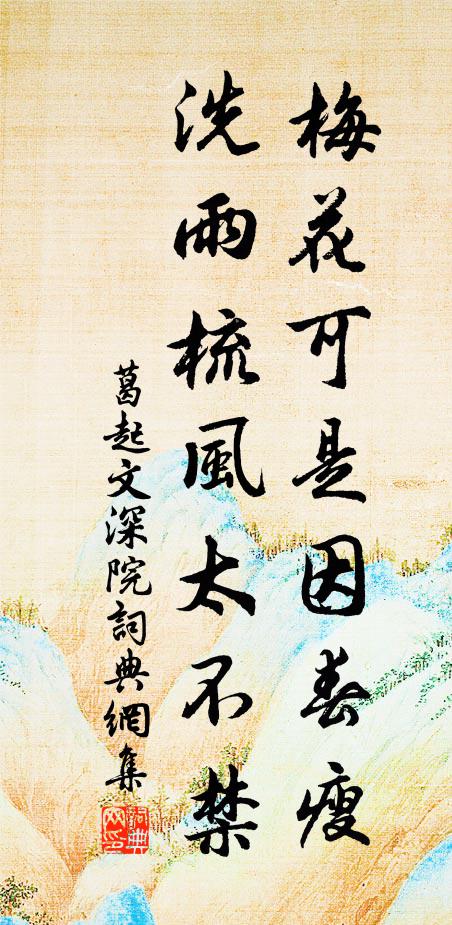 梅花可是因春瘦
洗雨梳風太不禁
葛起文深院詞典網集
詞典
網印